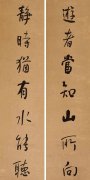 遊者當知山所向
靜時猶有水能聽